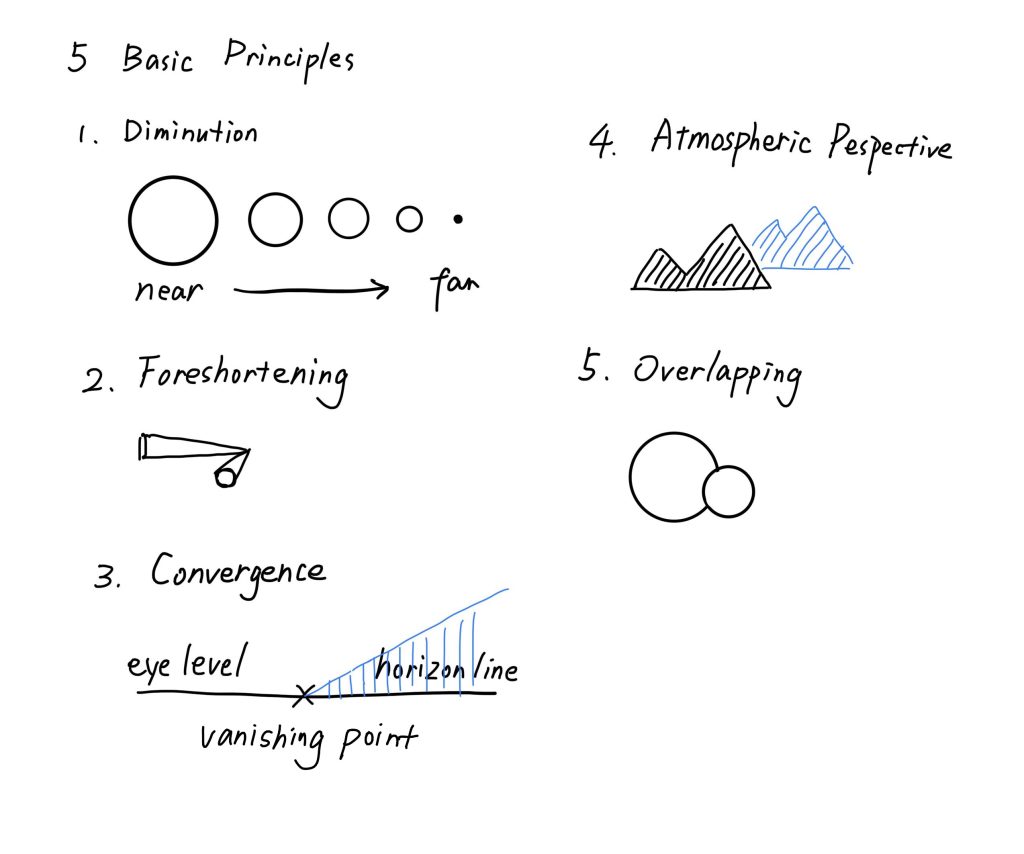 5 Basic Principles
1. Diminution
near
far
2. Foreshortening
3. Convergence
eye level
horizon line
vanishing point
4. Atmospheric Pespective
5. Overlapping